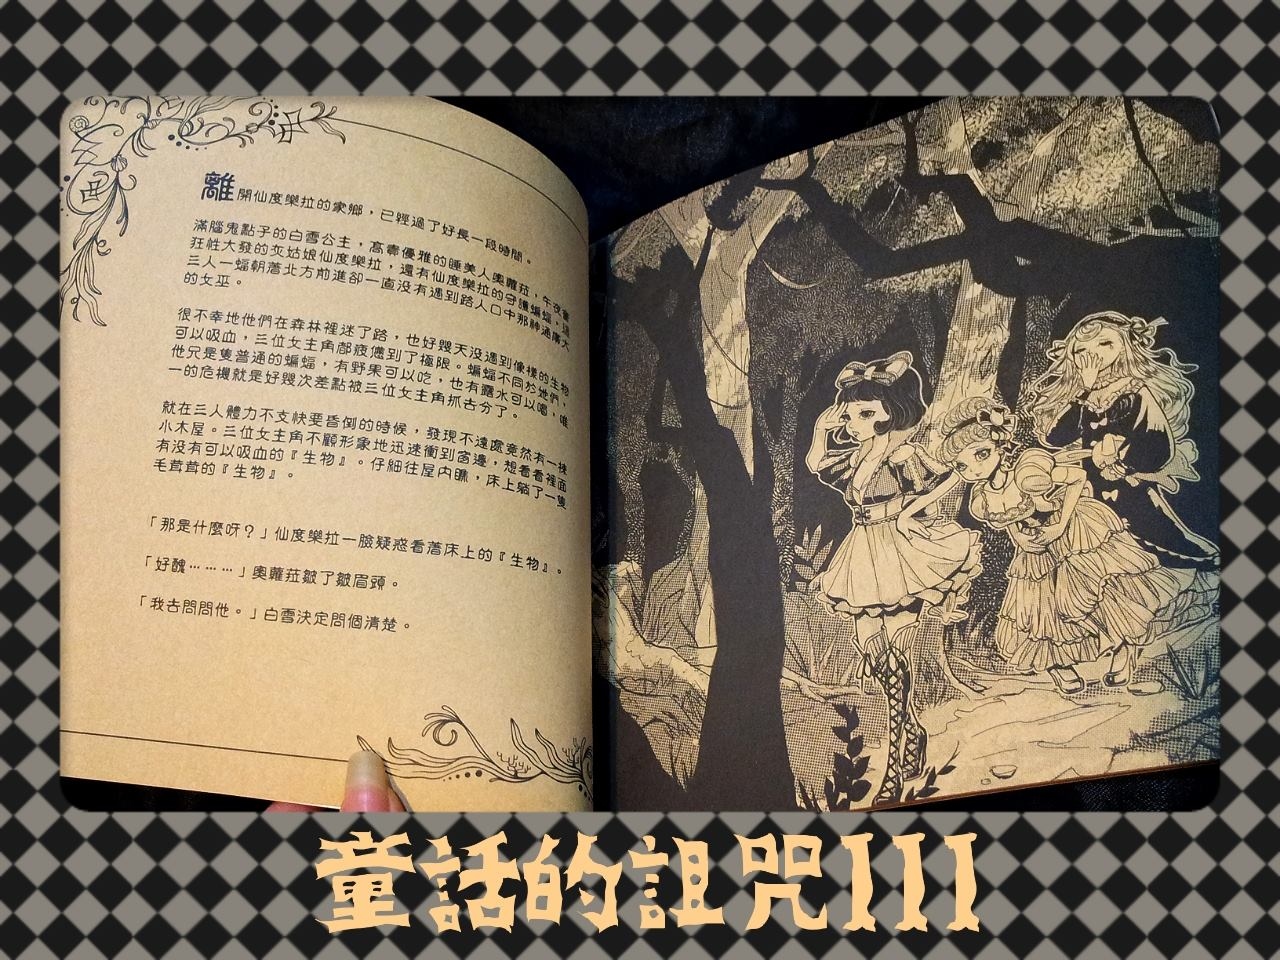 離開仙度樂拉的家鄉，已經過了好長一段時間。
滿腦鬼點子的白雪公主，高壽優雅的睡美人奧蘿菈，午夜會
狂性大發的灰姑娘仙度樂拉，還有仙度樂拉的守護蝙蝠，這
三人一蝠朝著北方前進卻一直沒有遇到路人口中那神通廣大
的女巫。
很不幸地他們在森林裡迷了路，也好幾天沒遇到像樣的生物
可以吸血，三位女主角都疲憊到了極限。蝙蝠不同於她們，
他只是隻普通的蝙蝠，有野果可以吃，也有露水可以喝，唯
一的危機就是好幾次差點被三位女主角抓去分了。
就在三人體力不支快要昏倒的時候，發現不遠處竟然有一棟
小木屋。三位女主角不顧形象地迅速衝到窗邊，想看看裡面
有沒有可以吸血的『生物』。仔細往屋內瞧，床上躺了一隻
毛茸茸的『生物』。
「那是什麼呀？」仙度樂拉一臉疑惑看著床上的『生物』。
「好醜………」奧蘿菈皺了皺眉頭。
「我去問問他。」白雪決定問個清楚。
童話的詛咒III